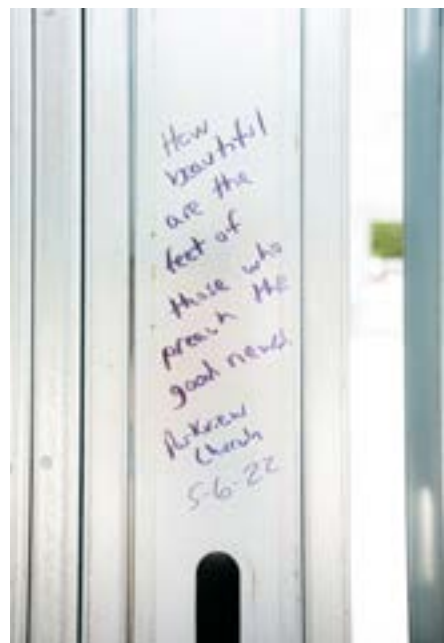 How
beautiful
are the
feet of
those who
preach the
good news!
Parkview
Church
5-6-22